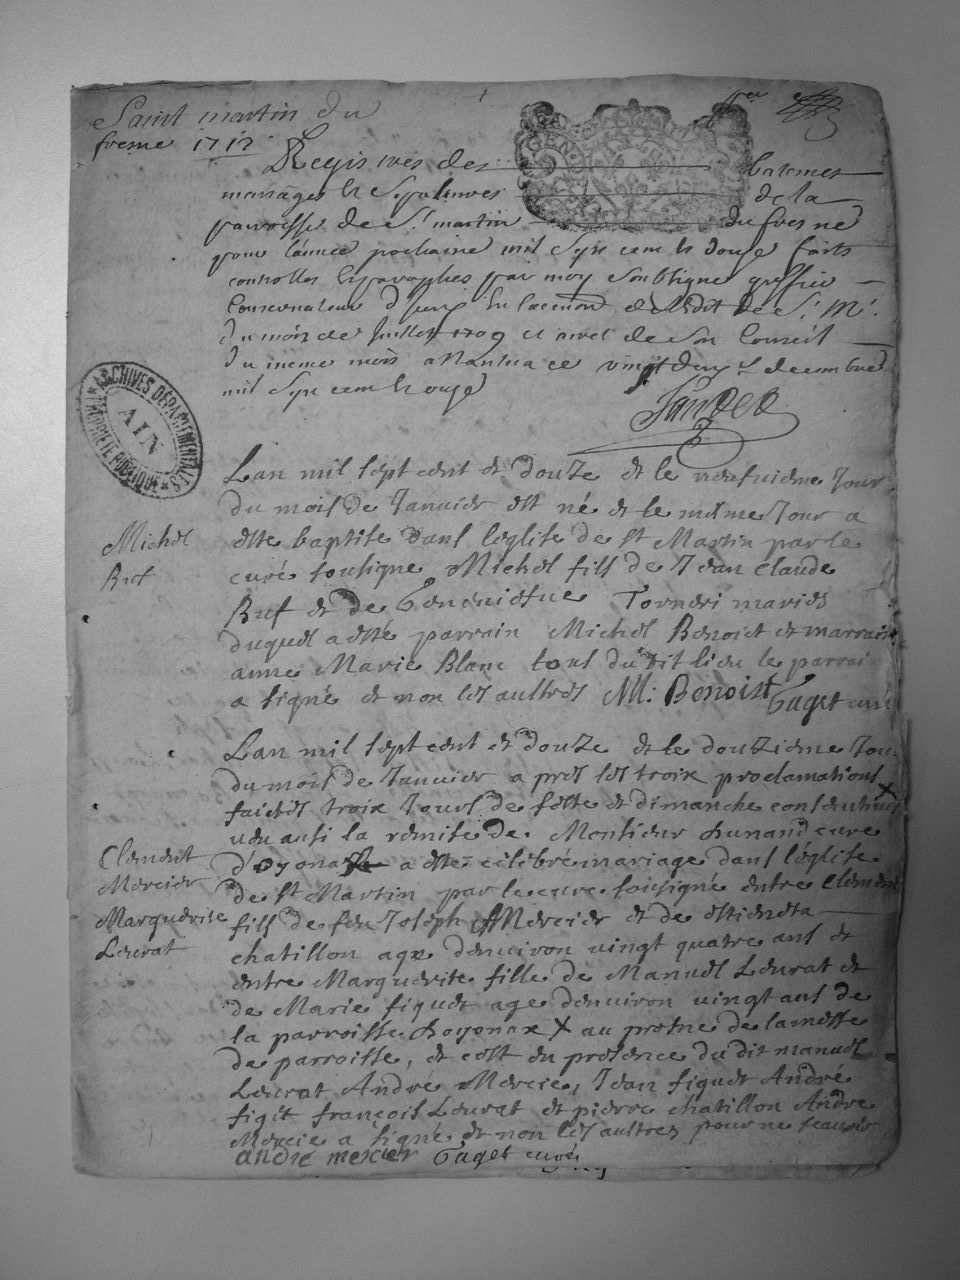 Saint martin du
fresne 1712
Registres des batemes
mariages et Sepultures de la
parroisse de St martin du fresne
pour lannée prochaine mil Sept cent et douze faits
cottes et paraphes par moy Soubsigne greffier
Conservateur
du mois de Juillet 1709 et arret de Son Conseil
du meme mois a Nantua ce vingt deux decembre
mil Sept cent et onze
GEN
ARCHIVES DÉPARTEMENTALES
AIN
PROPRIÉTÉ PUBLIQUE
Lan mil sept cent et douze et le neufuieme Jour
du mois de Januier est né et le mesme Jour a
Michel
este baptise dans leglise de st Martin par le
Buf
curé sousigne Michel fils de Jean Claude
Buf et de Geneuiefue Torneri mariés
duquel a esté parrain Michel Benoist et marraine
anne Marie Blanc tous du dit lieu le parrain
a signé et non les aultres M: Benoist Gaget curé
Lan mil sept cent et douze et le douzieme Jour
du mois de Januier apres les troix proclamations
faictes troix Jours de feste et dimanche consecutiues
ueu ausi la remise de Monsieur Hunand cure
Clement
d'oyonax a este celebré mariage dans l'église
Mercier
de st Martin par le cure sousigné entre Clement
Marguerite
fils de feu Joseph Mercier et de estienета
Leurat
chatillon age denuiron uingt quatre ans et
entre Marguerite fille de Manuel Leurat et
de Marie figuet age denuiron uingt ans de
la parroisse doyonax X au prosne de la messe
de parroisse, et cest en presence du dit manuel
Leurat André Mercie, Jean figuet André
figit françois Leurat et pierre chatillon Andre
Mercie a signé et non les aultres pour ne scauoir
andré mercier Gaget curé